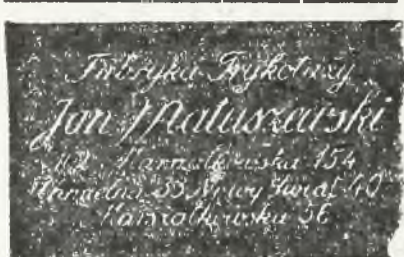 Fabryka Trykotaży
Jan Matuszewski
Marszałkowska 154
35 Nowy Świat 40
Marszałkowska 56